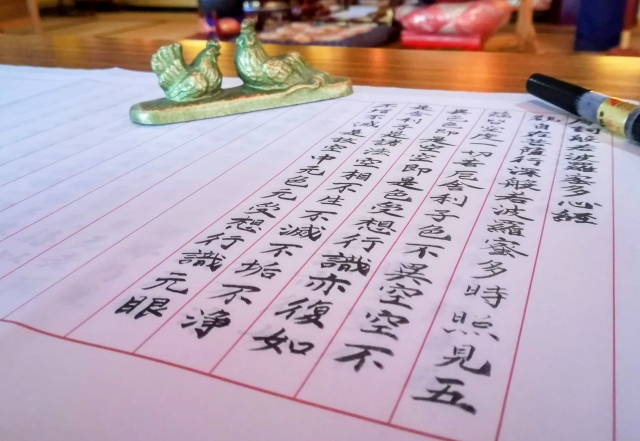 般若波羅蜜多心経
観自在菩薩行深般若波羅蜜多時照見五
蘊皆空度一切苦厄舎利子色不異空空不
異色色即是空空即是色受想行識亦復如
是舎利子是諸法空相不生不滅不垢不浄
不増不減是故空中无色无受想行識无眼